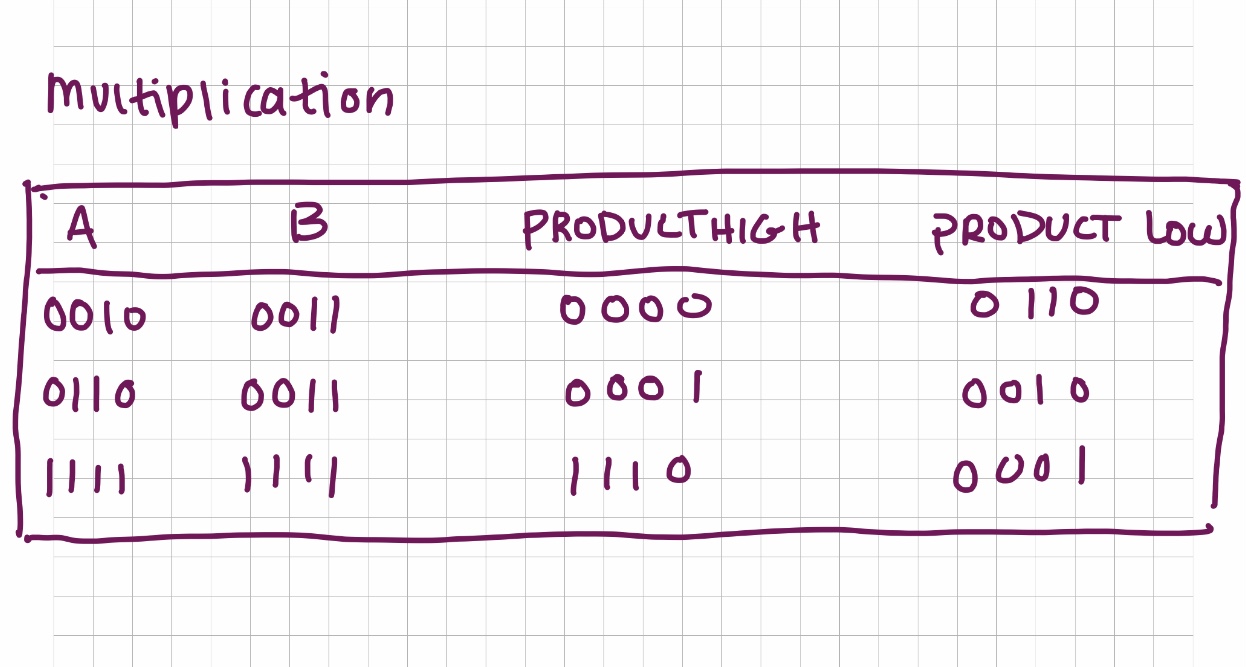 Multiplication
A B PRODULTHIGH PRODUCT LOW
0010 0011 0000 0110
0110 0011 0001 0010
1111 1111 1110 0001